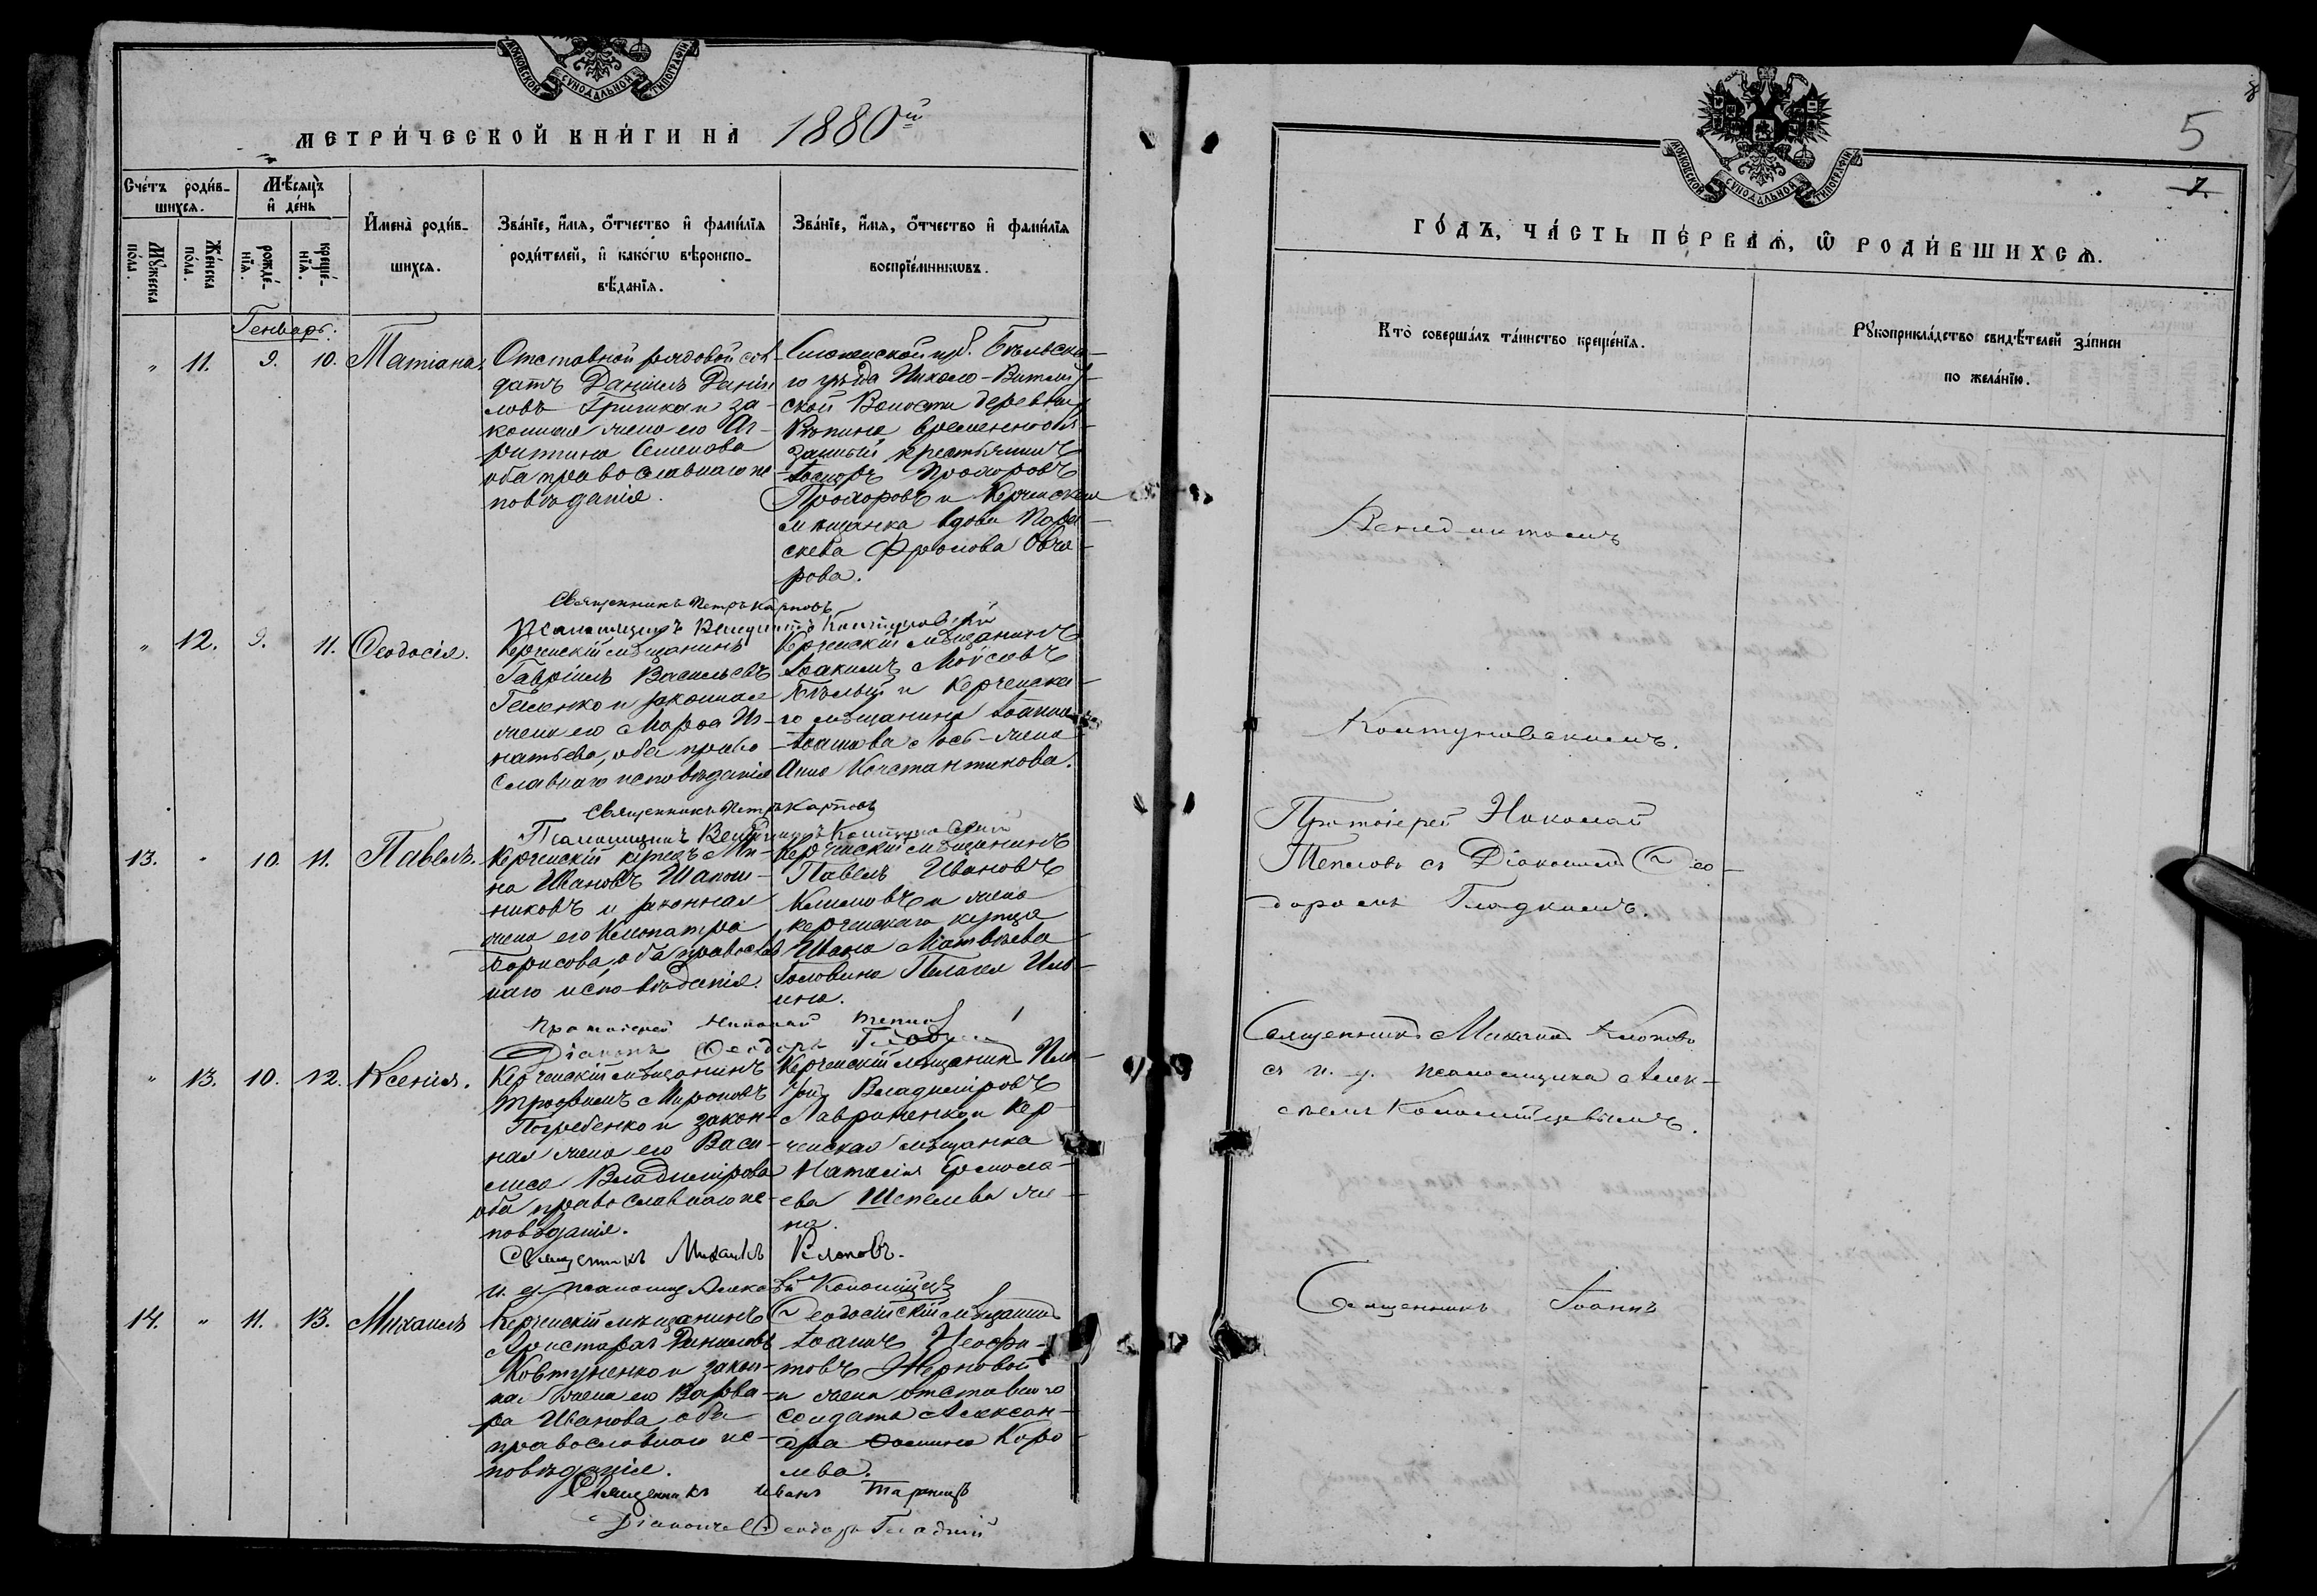 МОСКОВСКОЙ СѴНОДАЛЬНОЙ ТИПОГРАФІИ
МЕТРИ́ЧЕСКОЙ КНИ́ГИ НА 1880й
Сче́тъ роди́в-
шихсѧ.
Мѣ́сяцъ
и҆ де́нь
Мꙋ́жеска
по́ла.
Же́нска
по́ла.
рожде́-
нїѧ.
креще́-
нїѧ.
И҆мена̀ роди́в-
шихсѧ.
Зва́нїе, и҆́мѧ, о҆́тчество и҆ фами́лїѧ
роди́телей, и҆ како́гѡ вѣроиспо-
вѣ́данїѧ.
Зва́нїе, и҆́мѧ, о҆́тчество и҆ фами́лїѧ
воспрїе́мникѡвъ.
Генварь.
" 11. 9. 10. Татіана.
Отставной рядовой сол-
датъ Даніилъ Даніи
ловъ Гришка и за-
конная жена его Аг-
рипина Семенова
оба православнаго ис
повѣданія.
Смоленской губ. Бѣльска-
го уѣзда Николо-
ской Волости деревни
временнообя-
занный крестьянинъ
Прохоровъ
Прохоровъ и Керченская
мѣщанка вдова Параскева
Фролова Овча-
рова.
Священникъ Петръ Карповъ
Псаломщикъ Венедиктъ Контуновскій
" 12. 9. 11. Ѳеодосія.
Керченскій мѣщанинъ
Гавріилъ Васильевъ
Геленко и законная
жена его Марѳа Иг-
натьева, оба право-
славнаго исповѣданія
Керченскій мѣщанинъ
Іоакимъ Моѵсеевъ
Бѣлый и Керченска-
го мѣщанина Іоанна
жена
Анна Константинова.
Священникъ Петръ Карповъ
Псаломщикъ Венедиктъ Контуновскій
13. " 10. 11. Павелъ.
Керченскій купецъ Ми-
на Ивановъ Шапош-
никовъ и законная
жена его Клеопатра
Борисова, оба православ
наго исповѣданія.
Керченскій мѣщанинъ
Павелъ Ивановъ
Климовъ и жена
керченскаго купца
Ивана Матвѣева
Головина Пелагея Иль-
ина.
Протоіерей Николай Тепловъ
Діаконъ Ѳеодоръ Гладкій
" 13. 10. 12. Ксенія.
Керченскій мѣщанинъ
Трофимъ Мироновъ
Погребенко и закон-
ная жена его Васи-
лиса Владимірова
оба православнаго ис-
повѣданія.
Керченскій мѣщанинъ
Владиміровъ
Лавриненко и Кер-
ченская мѣщанка
Наталія Ермола-
ева Шепелева же-
на.
Священникъ Михаилъ Клоповъ.
и. д. псаломщ. Алексѣй Коломійцевъ
14. " 11. 13. Михаилъ
Керченскій мѣщанинъ
Аристархъ Даниловъ
Ковтуненко и закон-
ная жена его Варва-
ра Иванова, оба
православнаго ис-
повѣданія.
Ѳеодосійскій мѣщанинъ
Іоаннъ Неофи-
товъ Жерновой
и жена отставнаго
солдата Алексан-
дра Фомина Коро-
лева.
Священникъ Иванъ Таранецъ
Діаконъ Ѳеодоръ Гладкій
8
5
7
МОСКОВСКОЙ СѴНОДАЛЬНОЙ ТИПОГРАФІИ
ГО́ДЪ, ЧА́СТЬ ПЕ́РВАѦ, Ѡ҆ РОДИ́ВШИХСѦ.
Кто̀ соверша́лъ та́инство креще́нїѧ.
Рꙋкоприкла́дство свидѣ́телей за́писи
по жела́нїю.
Венедиктомъ
Контуновскимъ.
Протоіерей Николай
Тепловъ съ Діакономъ Ѳео-
доромъ Гладкимъ.
Священникъ Михаилъ Клоповъ
съ и. д. псаломщика Алек-
сѣемъ Коломійцевымъ.
Священникъ Іоаннъ